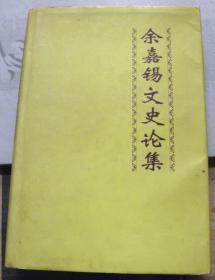 余嘉锡文史论集